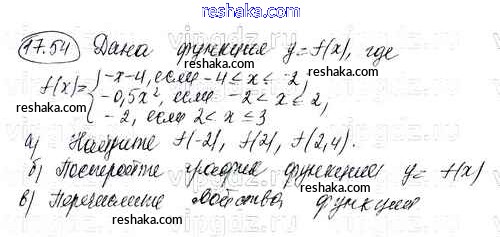 17.54 Дана функция y=f(x), где
f(x)={-x-4, если -4≤x≤-2,
-0,5x², если -2<x≤2,
-2, если 2<x≤3
а) Найдите f(-2), f(2), f(2,4).
б) Постройте график функции y=f(x)
в) Перечислите свойства функции
reshak.ru
reshak.ru
reshak.ru
reshak.ru
reshak.ru